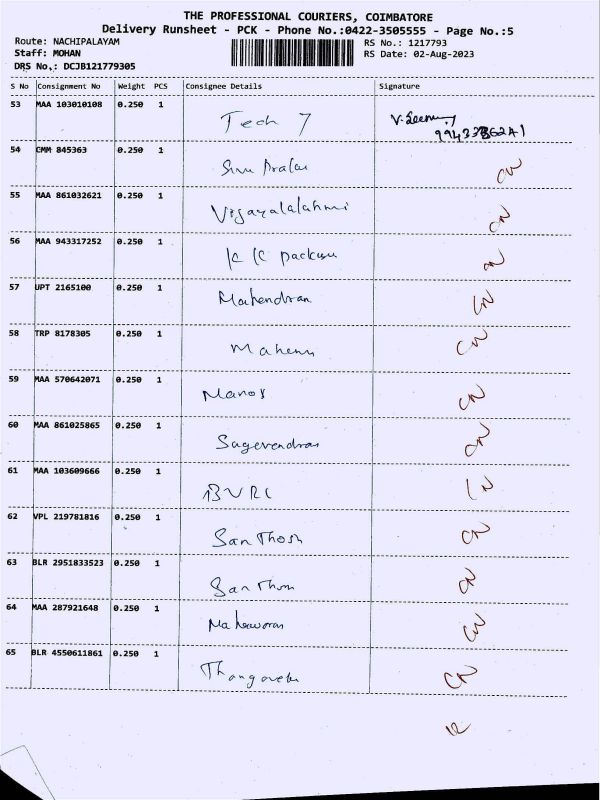 THE PROFESSIONAL COURIERS, COIMBATORE
Delivery Runsheet - PCK - Phone No.:0422-3505555 - Page No.:5
Route: NACHIPALAYAM RS No.: 1217793
Staff: MOHAN RS Date: 02-Aug-2023
DRS No.: DCJB121779305
S No Consignment No Weight PCS Consignee Details Signature
53 MAA 103010108 0.250 1 Tech 7
54 CMM 845363 0.250 1 CN
55 MAA 861032621 0.250 1 Vijayalalahmi CN
56 MAA 943317252 0.250 1 K K CN
57 UPT 2165100 0.250 1 Mahendran CN
58 TRP 8178305 0.250 1 CN
59 MAA 570642071 0.250 1 Manoj CN
60 MAA 861025865 0.250 1 Sagevendran CN
61 MAA 103609666 0.250 1 BVRC CN
62 VPL 219781816 0.250 1 SanThosh CN
63 BLR 2951833523 0.250 1 CN
64 MAA 287921648 0.250 1 CN
65 BLR 4550611861 0.250 1 Thangavelu CN
12